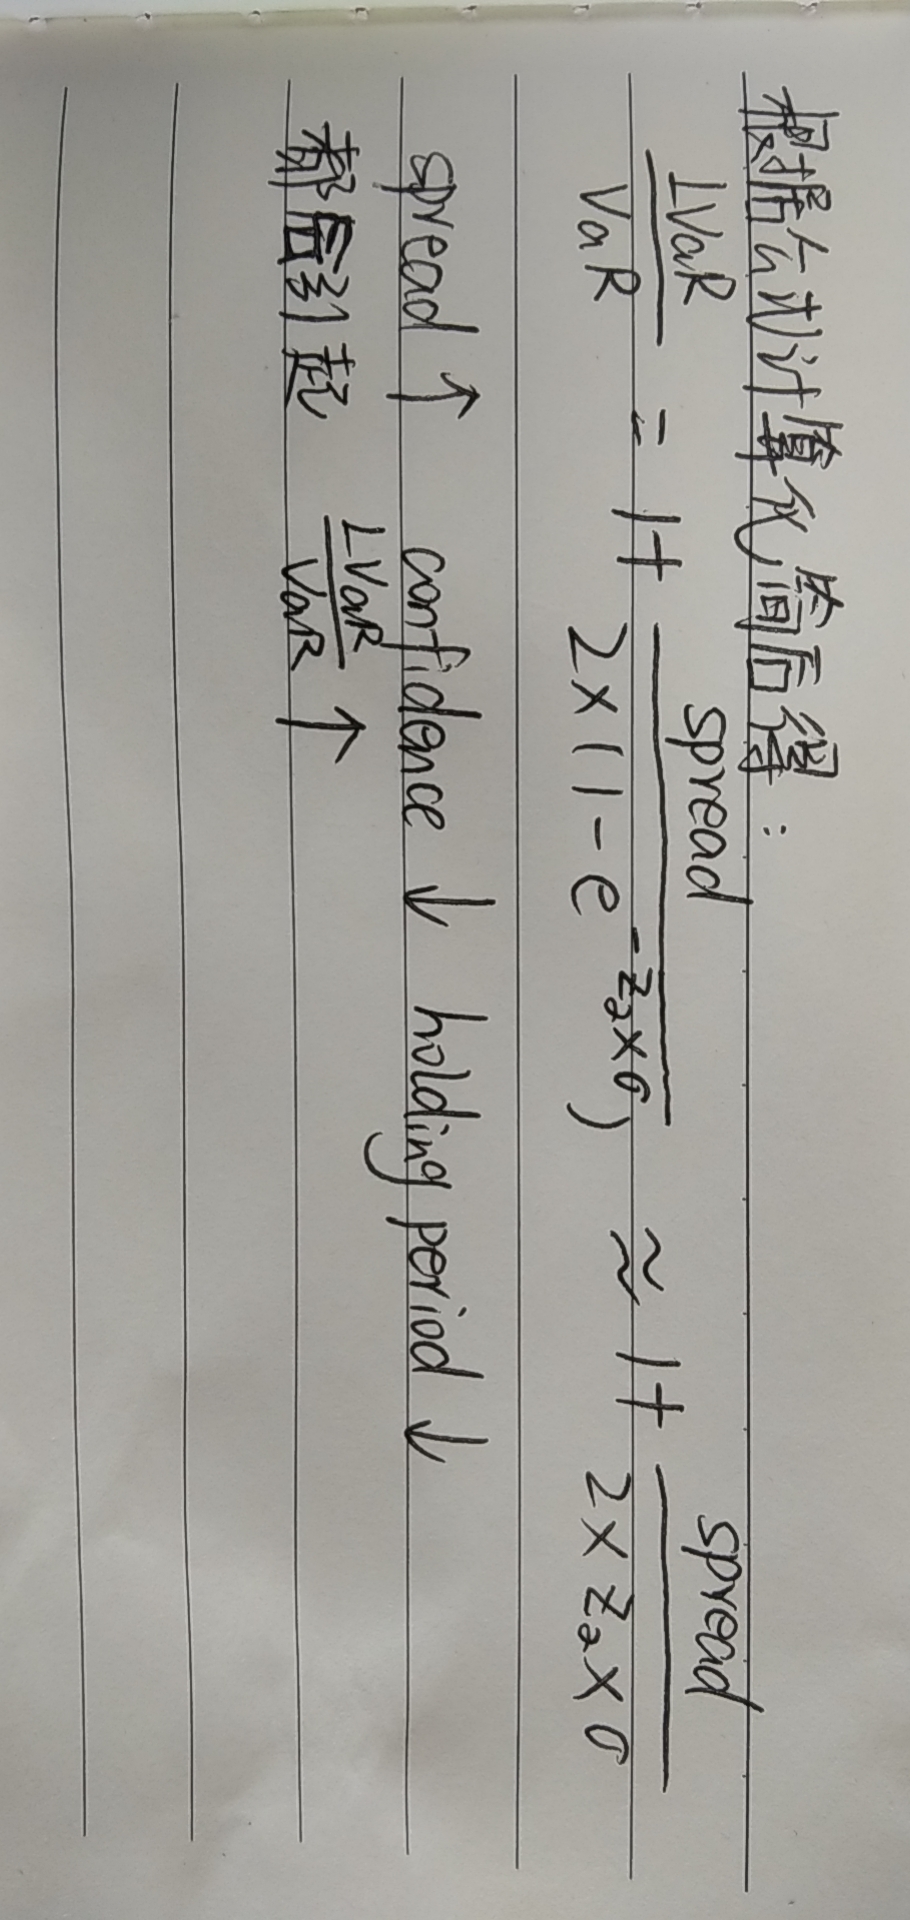 根据估计计算化简后得:
LVaR/VaR = 1+ spread/(2×(1-e^(-zₐ×σ))) ≈ 1+ spread/(2×zₐ×σ)
spread ↑ confidence ↓ holding period ↓
都会引起 LVaR/VaR ↑